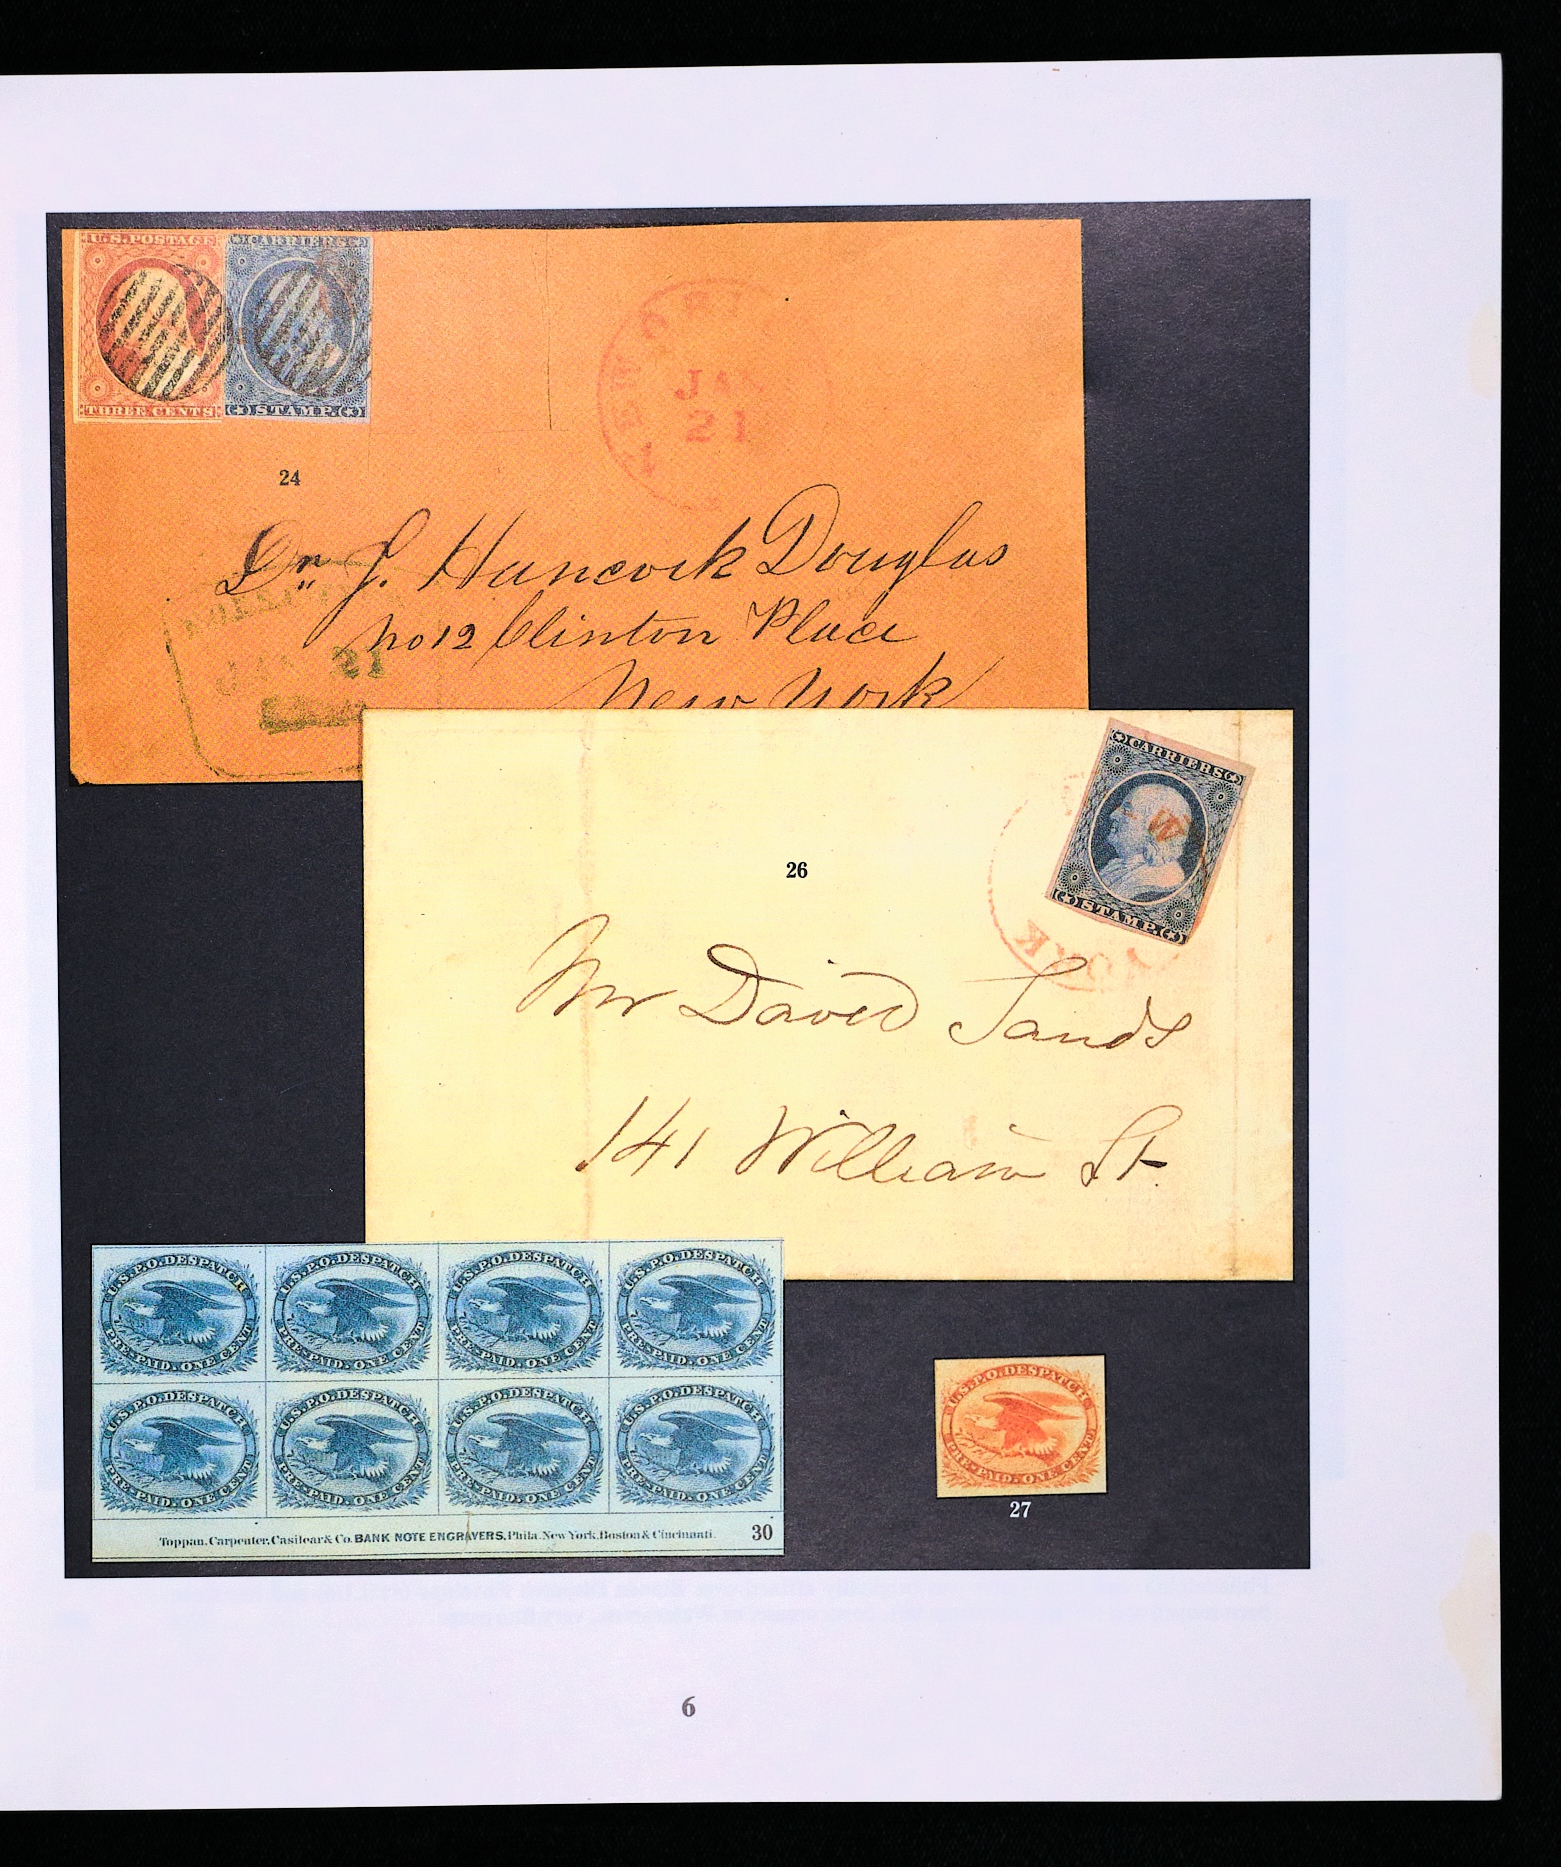 U.S. POSTAGE
THREE CENTS
CARRIERS
STAMP.
NEW YORK
JAN
21
24
Dr. J. Hancock Douglas
No 12 Clinton Place
New York
JAN 21
CARRIERS
STAMP.
W
YORK
26
Mr David Sands
141 William St.
U.S.P.O. DESPATCH
PRE-PAID. ONE CENT
U.S.P.O. DESPATCH
PRE-PAID. ONE CENT
U.S.P.O. DESPATCH
PRE-PAID. ONE CENT
U.S.P.O. DESPATCH
PRE-PAID. ONE CENT
U.S.P.O. DESPATCH
PRE-PAID. ONE CENT
U.S.P.O. DESPATCH
PRE-PAID. ONE CENT
U.S.P.O. DESPATCH
PRE-PAID. ONE CENT
U.S.P.O. DESPATCH
PRE-PAID. ONE CENT
Toppan, Carpenter, Casilear & Co. BANK NOTE ENGRAVERS, Phila. New York, Boston & Cincinnati.
30
U.S.P.O. DESPATCH
PRE-PAID. ONE CENT
27
6